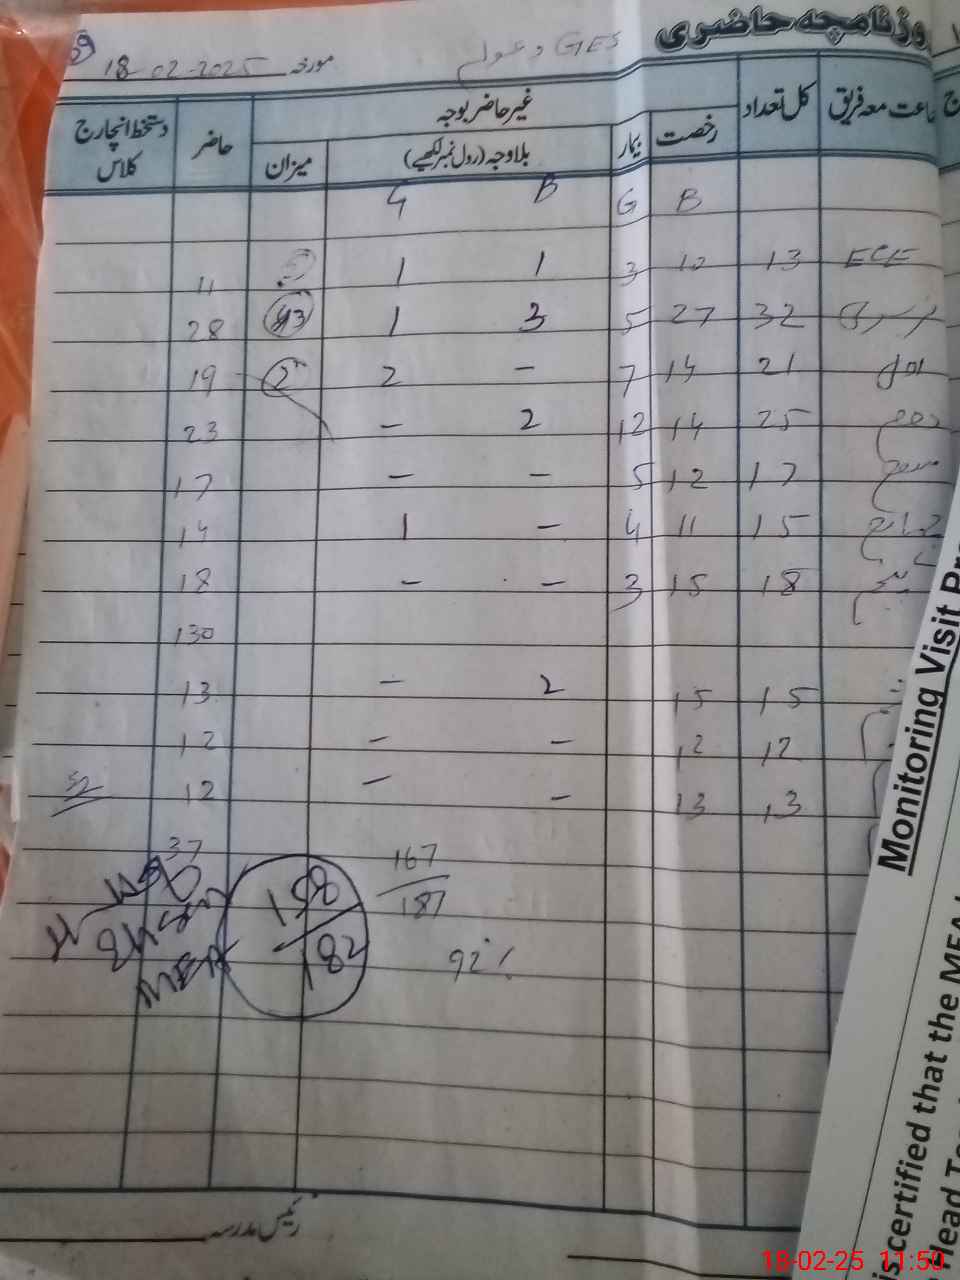 روزنامچہ حاضری
GES
مورخہ 18-02-2025
جماعت معہ فریق کل تعداد رخصت بیمار غیر حاضر بوجہ حاضر دستخط انچارج کلاس
بلاوجہ (رول نمبر لکھیے) میزان
B G B G
ECE 13 10 3 1 1 11
نرسری 32 27 5 3 1 28
اول 21 14 7 - 2 2 19
دوم 25 14 12 2 - 23
سوم 17 12 5 - - 17
چہارم 15 11 4 - 1 14
پنجم 18 15 3 - - 18
130
15 15 2 - 13
12 12 - - 12
13 13 - - 12
37
167
187
158
182
92%
MEA
رئیس مدرسہ
Monitoring Visit Pro
is certified that the MEA
Head Te
18-02-25 11:50